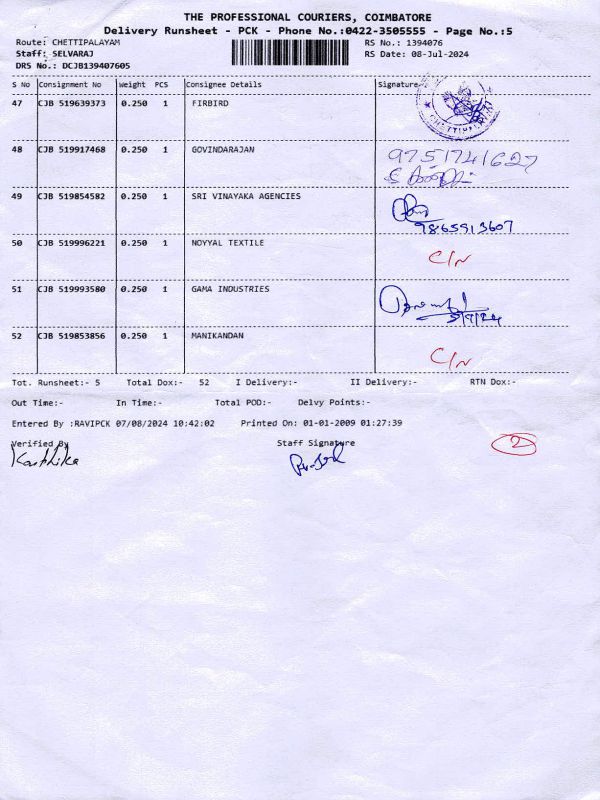 THE PROFESSIONAL COURIERS, COIMBATORE
Delivery Runsheet - PCK - Phone No.:0422-3505555 - Page No.:5
Route: CHETTIPALAYAM RS No.: 1394076
Staff: SELVARAJ RS Date: 08-Jul-2024
DRS No.: DCJB139407605
S No Consignment No Weight PCS Consignee Details Signature
47 CJB 519639373 0.250 1 FIRBIRD
CHETTIPALAYAM
48 CJB 519917468 0.250 1 GOVINDARAJAN 9751741627
49 CJB 519854582 0.250 1 SRI VINAYAKA AGENCIES
9865913607
50 CJB 519996221 0.250 1 NOYYAL TEXTILE C/N
51 CJB 519993580 0.250 1 GAMA INDUSTRIES
52 CJB 519853856 0.250 1 MANIKANDAN C/N
Tot. Runsheet:- 5 Total Dox:- 52 I Delivery:- II Delivery:- RTN Dox:-
Out Time:- In Time:- Total POD:- Delvy Points:-
Entered By :RAVIPCK 07/08/2024 10:42:02 Printed On: 01-01-2009 01:27:39
Verified By Staff Signature 2
Karthika